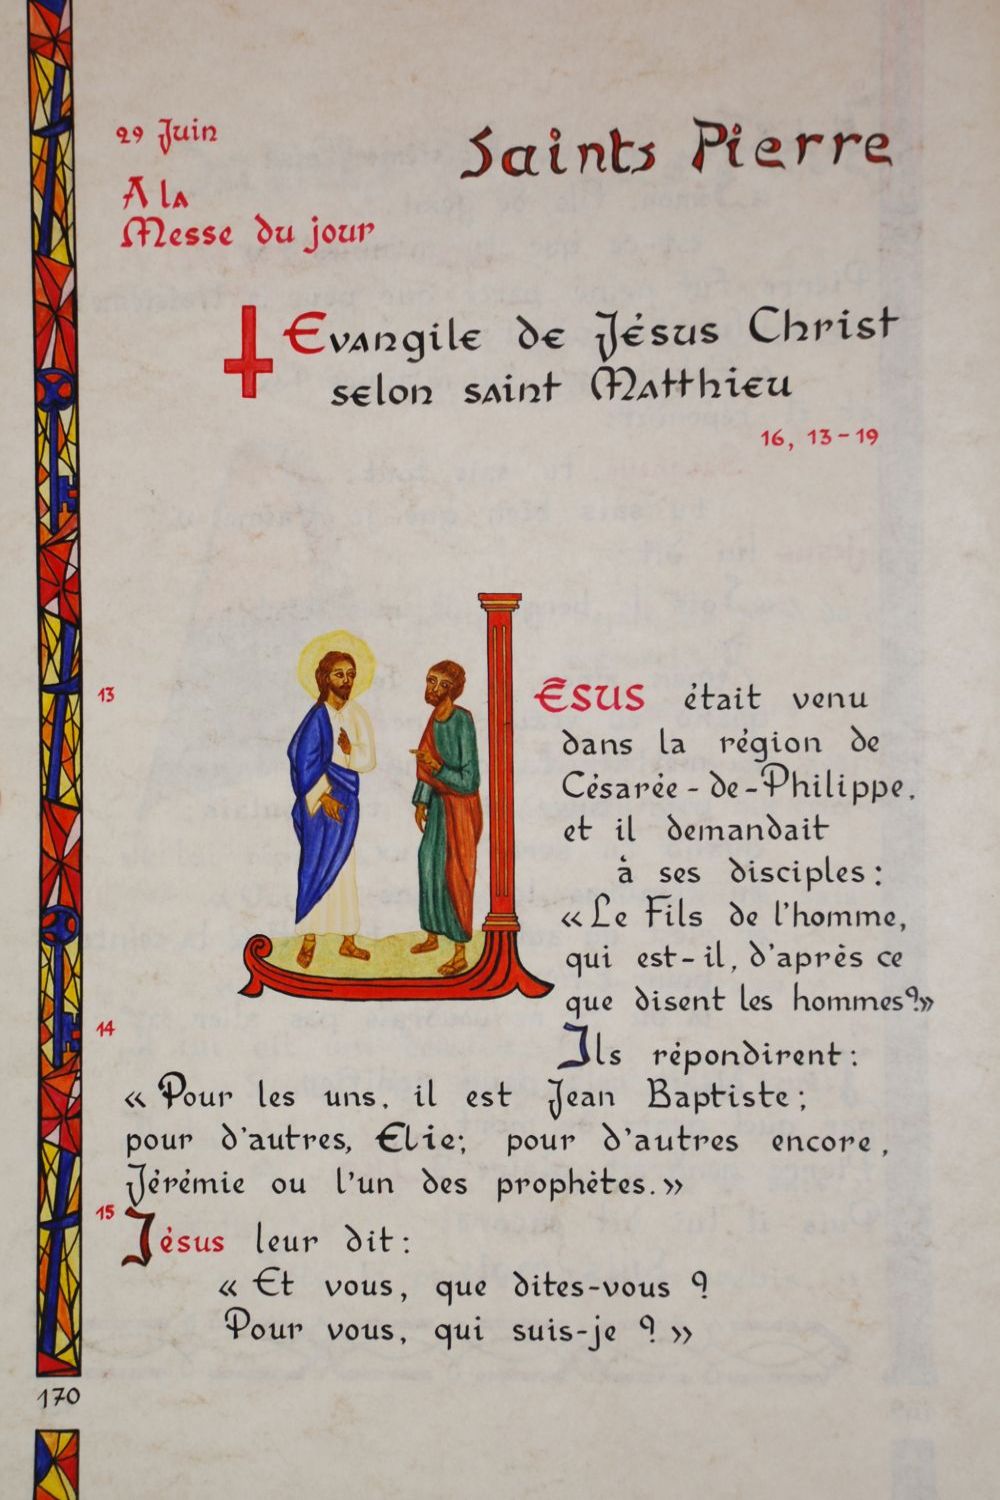 29 Juin
Saints Pierre
A la
Messe du jour
Evangile de Jésus Christ
selon saint Matthieu
16, 13-19
13
JESUS était venu
dans la région de
Césarée-de-Philippe,
et il demandait
à ses disciples:
«Le Fils de l'homme,
qui est-il, d'après ce
que disent les hommes?»
14
Ils répondirent:
«Pour les uns, il est Jean Baptiste;
pour d'autres, Elie; pour d'autres encore,
Jérémie ou l'un des prophètes.»
15
Jésus leur dit:
«Et vous, que dites-vous?
Pour vous, qui suis-je?»
170